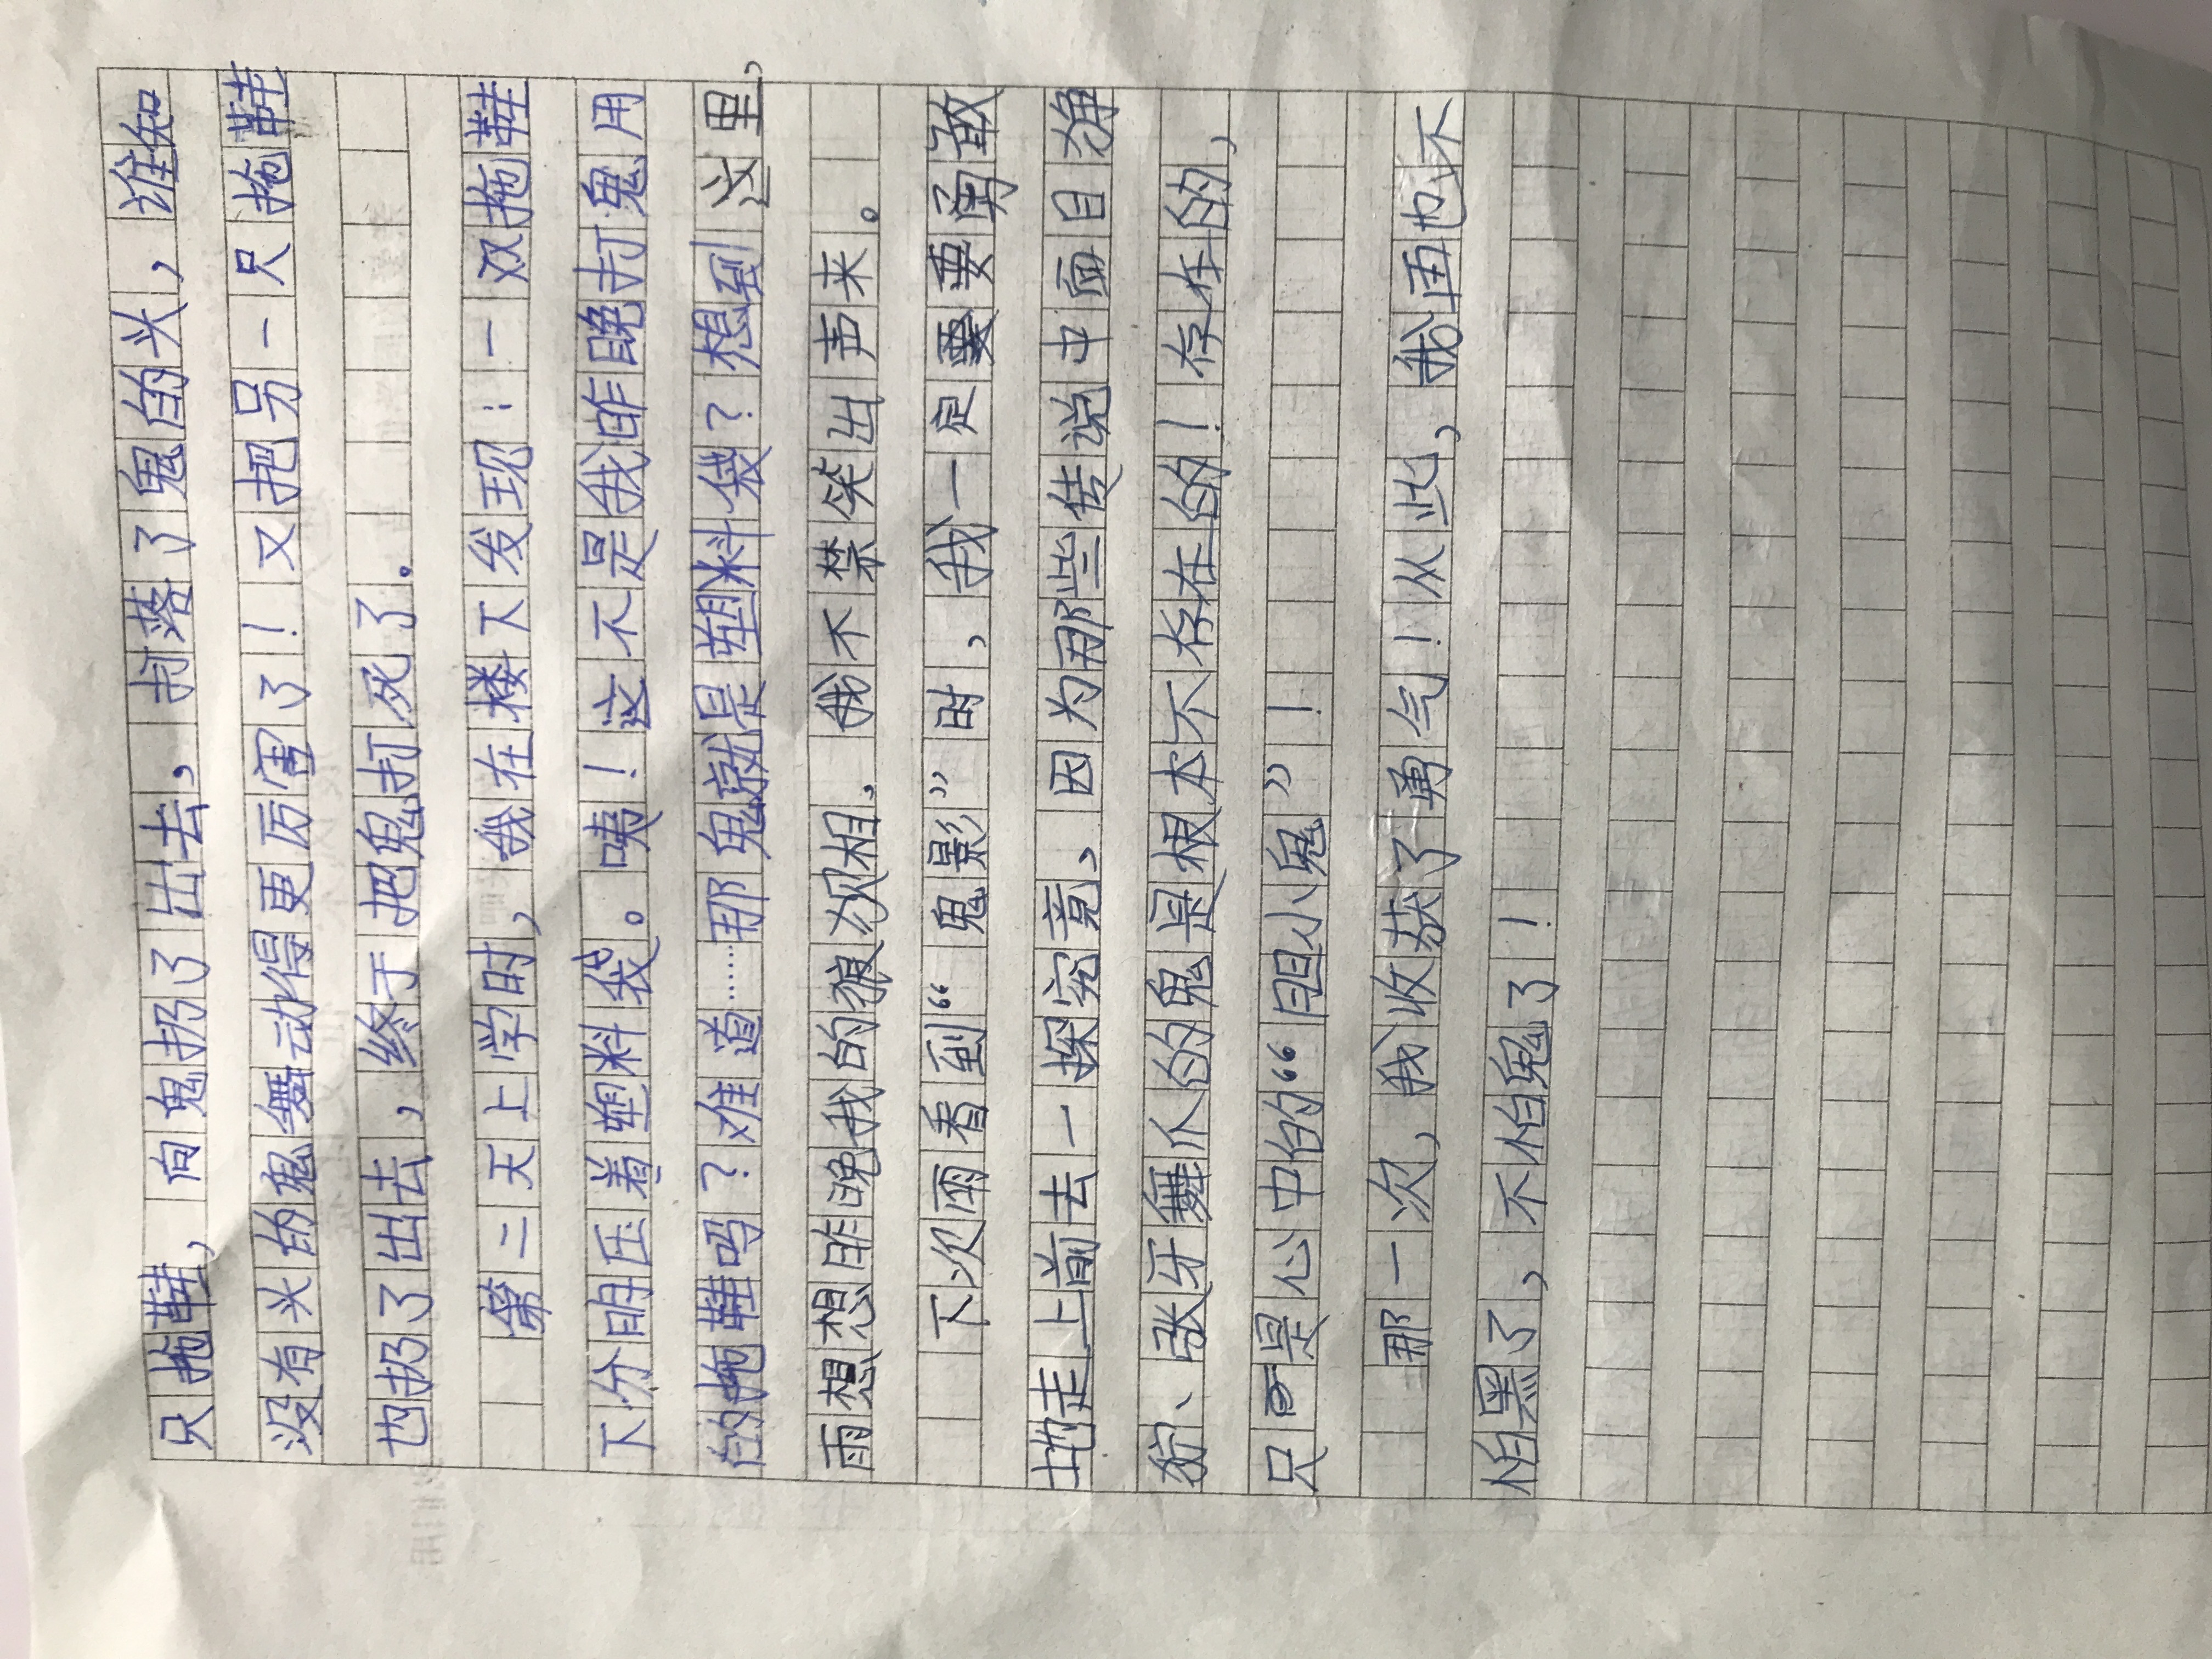 只拖鞋，向鬼扔了出去，打落了鬼的头，谁知
没有头的鬼舞动得更厉害了！又把另一只拖鞋
也扔了出去，终于把鬼打死了。
第二天上学时，我在楼下发现：一双拖鞋
下分明压着塑料袋。咦！这不是我昨晚打鬼用
的拖鞋吗？难道……那鬼就是塑料袋？想到这里，
再想想昨晚我的狼狈相，我不禁笑出声来。
下次再看到“鬼影”时，我一定要要勇敢
地走上前去一探究竟，因为那些传说中面目狰
狞、张牙舞爪的鬼是根本不存在的！存在的，
只是心中的“胆小鬼”！
那一次，我收获了勇气！从此，我再也不
怕黑了，不怕鬼了！